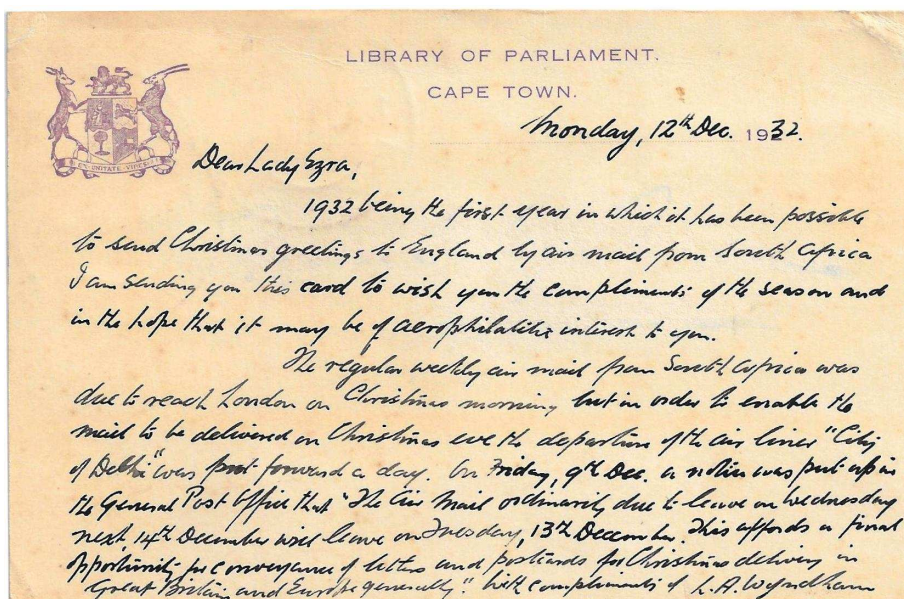 LIBRARY OF PARLIAMENT.
CAPE TOWN.
Monday, 12th Dec. 1932.
EX UNITATE VIRES
Dear Lady Ezra,
1932 being the first year in which it has been possible
to send Christmas greetings to England by air mail from South Africa
I am sending you this card to wish you the compliments of the season and
in the hope that it may be of aerophilatelic interest to you.
The regular weekly air mail from South Africa was
due to reach London on Christmas morning but in order to enable the
mail to be delivered on Christmas eve the departure of the air liner "City
of Delhi" was put forward a day. On Friday, 9th Dec. a notice was put up in
the General Post Office that "The Air Mail ordinarily due to leave on Wednesday
next, 14th December will leave on Tuesday, 13th December. This affords a final
opportunity for conveyance of letters and postcards for Christmas delivery in
Great Britain and Europe generally". With compliments of L.A. Wyndham